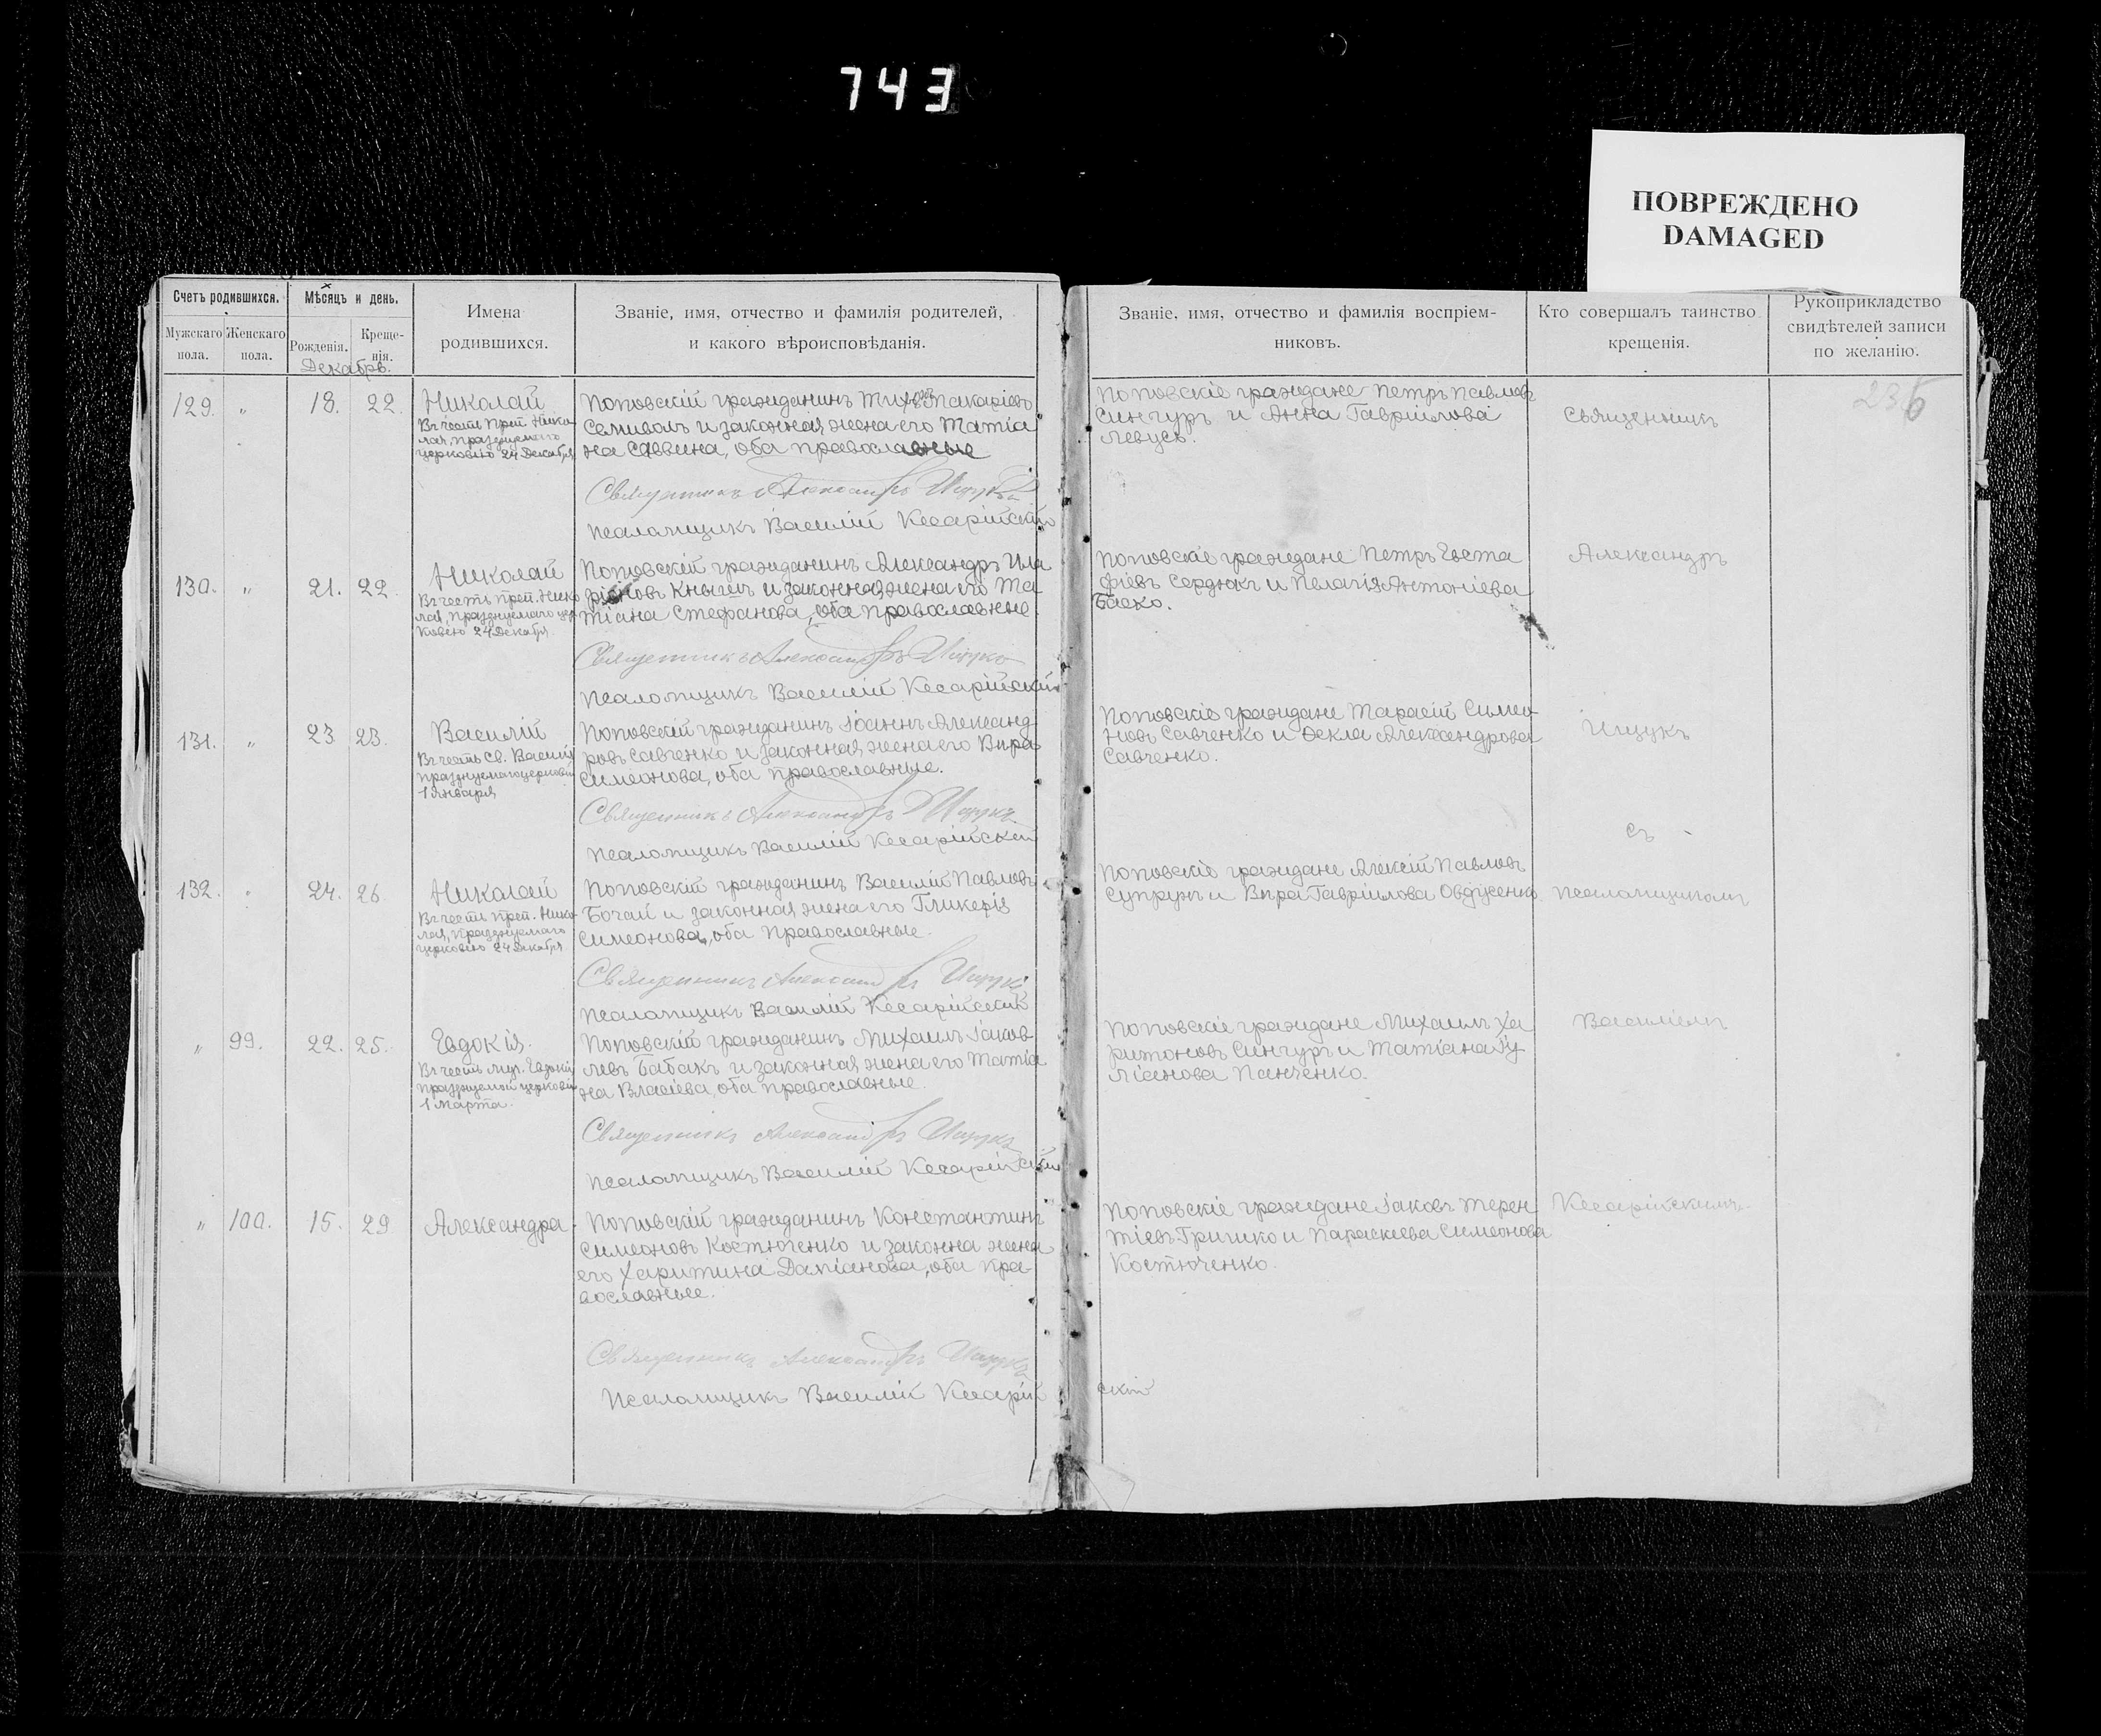 743
ПОВРЕЖДЕНО
DAMAGED
Счетъ родившихся.
Мужскаго пола.
Женскаго пола.
Мѣсяцъ и день.
Рожденія.
Крещенія.
Декабрь.
Имена
родившихся.
Званіе, имя, отчество и фамилія родителей,
и какого вѣроисповѣданія.
Званіе, имя, отчество и фамилія воспріем-
никовъ.
Кто совершалъ таинство
крещенія.
Рукоприкладство
свидѣтелей записи
по желанію.
236
129. " 18. 22. Николай
Въ честь преп. Нико-
лая, празднуемаго
церковію 24 Декабря
Поповскій гражданинъ Макаріевъ
и законная жена его Татіа
на Саввина, оба православные
Священникъ Александръ Ищукъ
Псаломщикъ Василій Кесарійскій
Поповскіе граждане Петръ Павловъ
Сингуръ и Анна Гавріилова
Левусь.
Священникъ
130. " 21. 22. Николай
Въ честь преп. Нико
лая, празднуемаго цер-
ковію 24 Декабря
Поповскій гражданинъ Александръ Ила
ріоновъ Кнышъ и законная жена его Та
тіана Стефанова, оба православные
Священникъ Александръ Ищукъ
Псаломщикъ Василій Кесарійскій
Поповскіе граждане Петръ Евста
фіевъ Сердюкъ и Пелагія Антоніева
Александръ
131. " 23. 23. Василій
Въ честь Св. Василія
празднуемаго церковію
1 Января
Поповскій гражданинъ Іоаннъ Александ
ровъ Савченко и законная жена его Вѣра
Симеонова, оба православные.
Священникъ Александръ Ищукъ
Псаломщикъ Василій Кесарійскій
Поповскіе граждане Тарасій Симео-
новъ Савченко и Ѳекла Александрова
Савченко.
Ищукъ
съ
132. " 24. 26. Николай
Въ честь преп. Нико-
лая, празднуемаго
церковію 24 Декабря
Поповскій гражданинъ Василій Павловъ
Бочай и законная жена его Гликерія
Симеонова, оба православные.
Священникъ Александръ Ищукъ
Псаломщикъ Василій Кесарійскій
Поповскіе граждане Алексій Павловъ
Супрунъ и Вѣра Гавріилова Овдіенко
псаломщикомъ
" 99. 22. 25. Евдокія.
Въ честь муч. Евдокіи
празднуемой церковію
1 Марта.
Поповскій гражданинъ Михаилъ Іаков
левъ Бабакъ и законная жена его Татіа
на Власіева, оба православные.
Священникъ Александръ Ищукъ
Псаломщикъ Василій Кесарійскій
Поповскіе граждане Михаилъ Ха
ритоновъ Сингуръ и Татіана Іу
ліанова Панченко.
Василіемъ
" 100. 15. 29. Александра.
Поповскій гражданинъ Константинъ
Симеоновъ Костюченко и законна жена
его Харитина Даміанова, оба пра-
вославные.
Священникъ Александръ Ищукъ
Псаломщикъ Василій Кесарійскій
Поповскіе граждане Іаковъ Терен
тіевъ Гришко и Параскева Симеонова
Костюченко.
Кесарійскимъ.